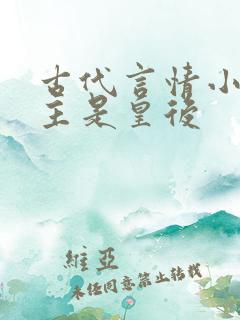 古代言情小
主是皇後
維亞
未任同意禁止转载